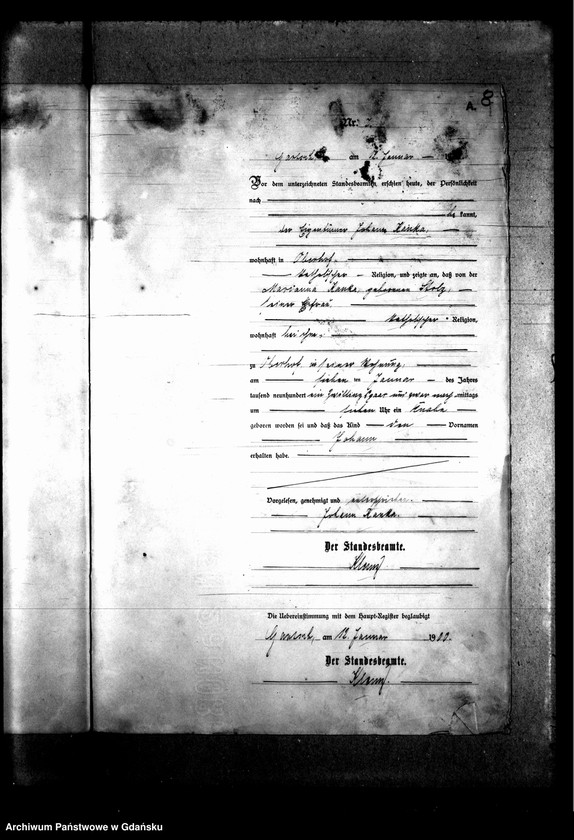 A. 8
Nr.
am 12. Januar
Vor dem unterzeichneten Standesbeamten erschien heute, der Persönlichkeit
nach
kannt,
der Eigentümer Johann Kanka,
wohnhaft in Oberhof,
katholischer Religion, und zeigte an, daß von der
Marianna Kanka geborenen Stolz,
seiner Ehefrau
katholischer Religion,
wohnhaft bei ihm,
zu Oberhof, in seiner Wohnung,
am sieben ten Januar des Jahres
tausend neunhundert ein Zwillingspaar und zwar nach mittags
um sieben Uhr ein Knabe
geboren worden sei und daß das Kind den Vornamen
Johann
erhalten habe.
Vorgelesen, genehmigt und unterschrieben.
Johann Kanka.
Der Standesbeamte.
Die Uebereinstimmung mit dem Haupt-Register beglaubigt
am 12. Januar 1900.
Der Standesbeamte.
Archiwum Państwowe w Gdańsku